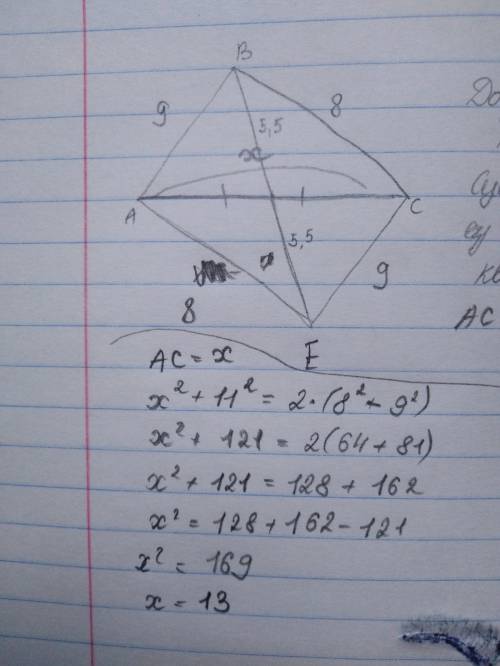 B
9
8
5,5
x
A
C
5,5
9
8
E
AC = x
x² + 11² = 2·(8² + 9²)
x² + 121 = 2(64 + 81)
x² + 121 = 128 + 162
x² = 128 + 162 - 121
x² = 169
x = 13
До
ку
AC